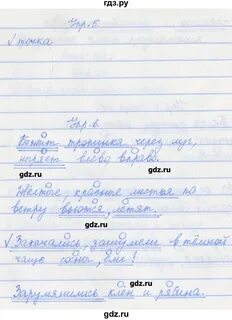 гдз.ру
Упр. 5.
√ точка
gdz.ru
gdz.ru
Упр. 6.
Бежит тропинка через луг,
ныряет влево вправо.
gdz.ru
gdz.ru
Жёлтые, красные листья по
ветру вьются, летят.
gdz.ru
gdz.ru
√ Закачались, зашумели в тёмной
чаще сосны, ели!
gdz.ru
gdz.ru
Зарумянились клён и рябина.
gdz.ru
gdz.ru